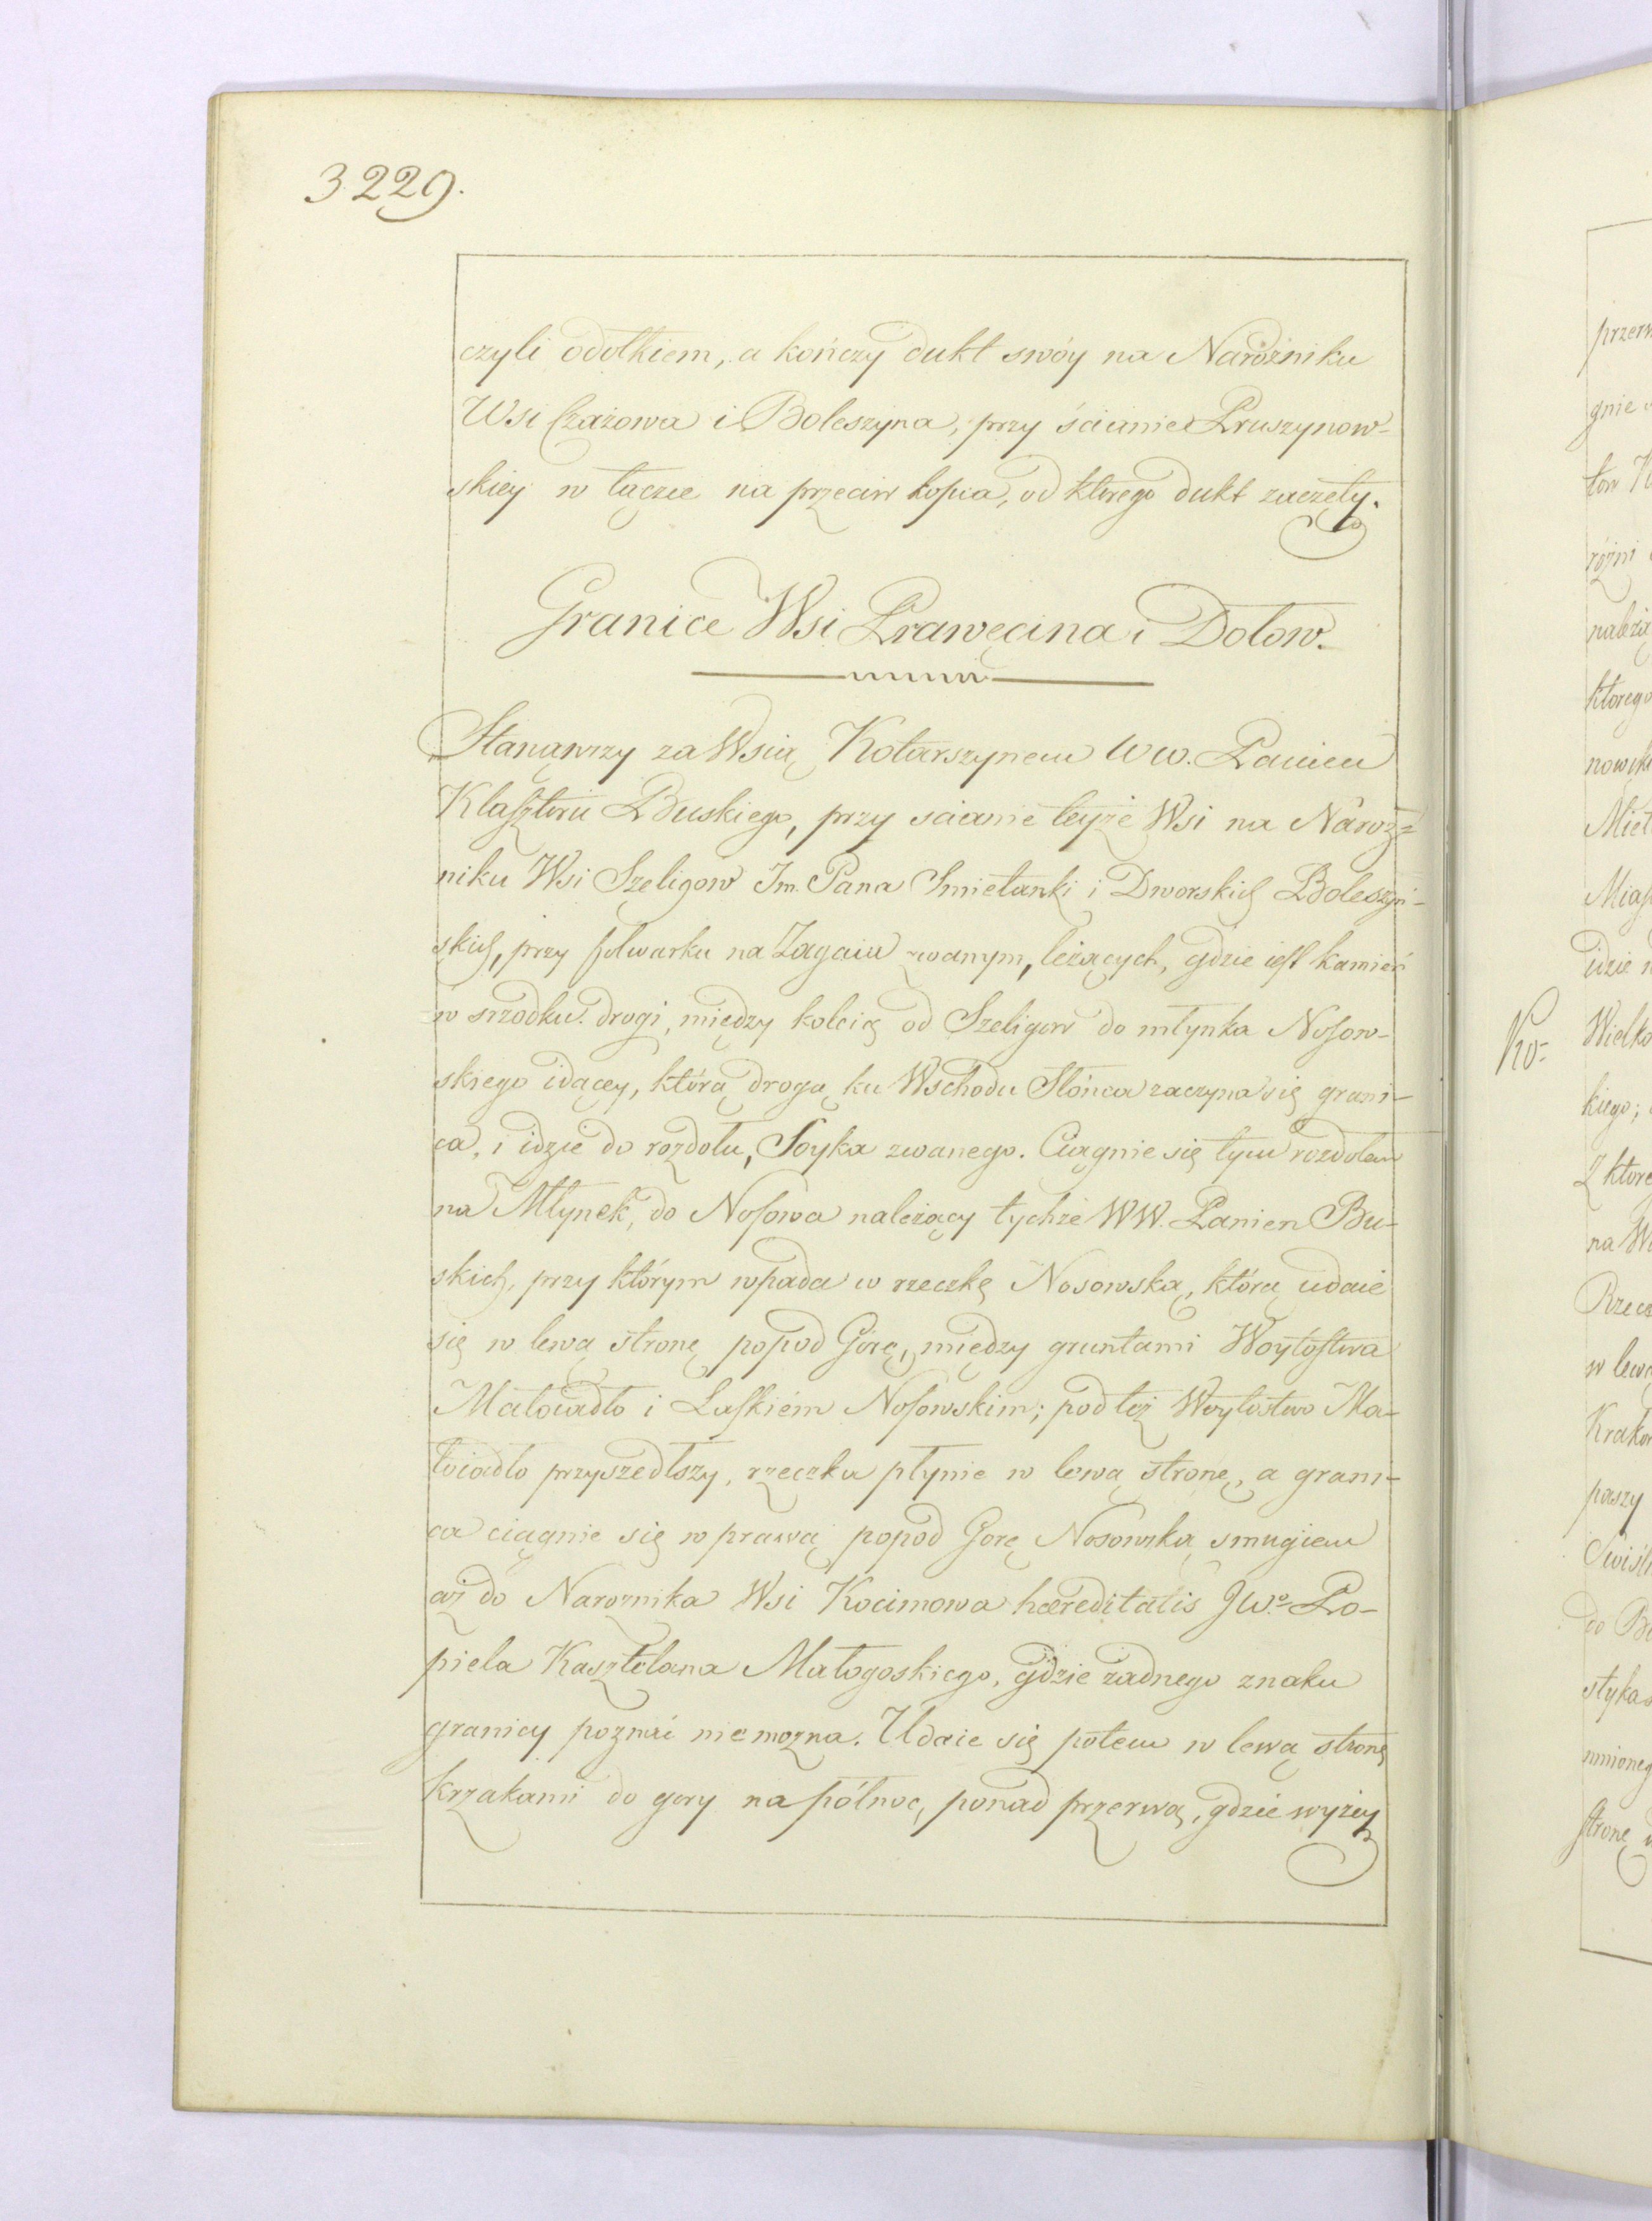 3229.
czyli odołkiem, a kończy dukt swóy na Narożniku
Wsi Czażowa i Boleszyna, przy ścianie Pruszynow-
skiey w łączce na przeciw kopca, od ktorego dukt zaczęty.
Granice Wsi Prawęcina i Dołow.
Stanąwszy za Wsią Kotarszynem WW. Panien
Klasztoru Buskiego, przy scianie teyże Wsi na Naroż=
niku Wsi Szeligow Jm. Pana Smietanki i Dworskich Boleszyń-
skich, przy folwarku na Zagaiu zwanym, leżących, gdzie iest kamień
w srzodku drogi, między koleią od Szeligow do młynka Nosow-
skiego idącey, którą drogą ku Wschodu Słońca zaczyna się grani-
ca, i idzie do rozdołu, Soyka zwanego. Ciągnie się tym rozdołem
na Młynek, do Nosowa należący tychże WW. Panien Bu-
skich, przy którym wpada w rzeczkę Nosowską, którą udaie
się w lewą stronę popod Górę, między gruntami Woytostwa
Małoiadło i Laskiém Nosowskim; pod toż Woytostwo Ma-
łoiadło przyszedłszy, rzeczka płynie w lewą stronę, a grani-
ca ciągnie się w prawą popod Gorę Nosowską smugiem
aż do Naroznika Wsi Kocimowa hæreditatis JWo Po-
piela Kasztelana Małogoskiego, gdzie żadnego znaku
granicy poznać nie mozna. Udaie się potem w lewą stronę
krzakami do gory na północ, ponad przerwą, gdzie wyżey
Ko-